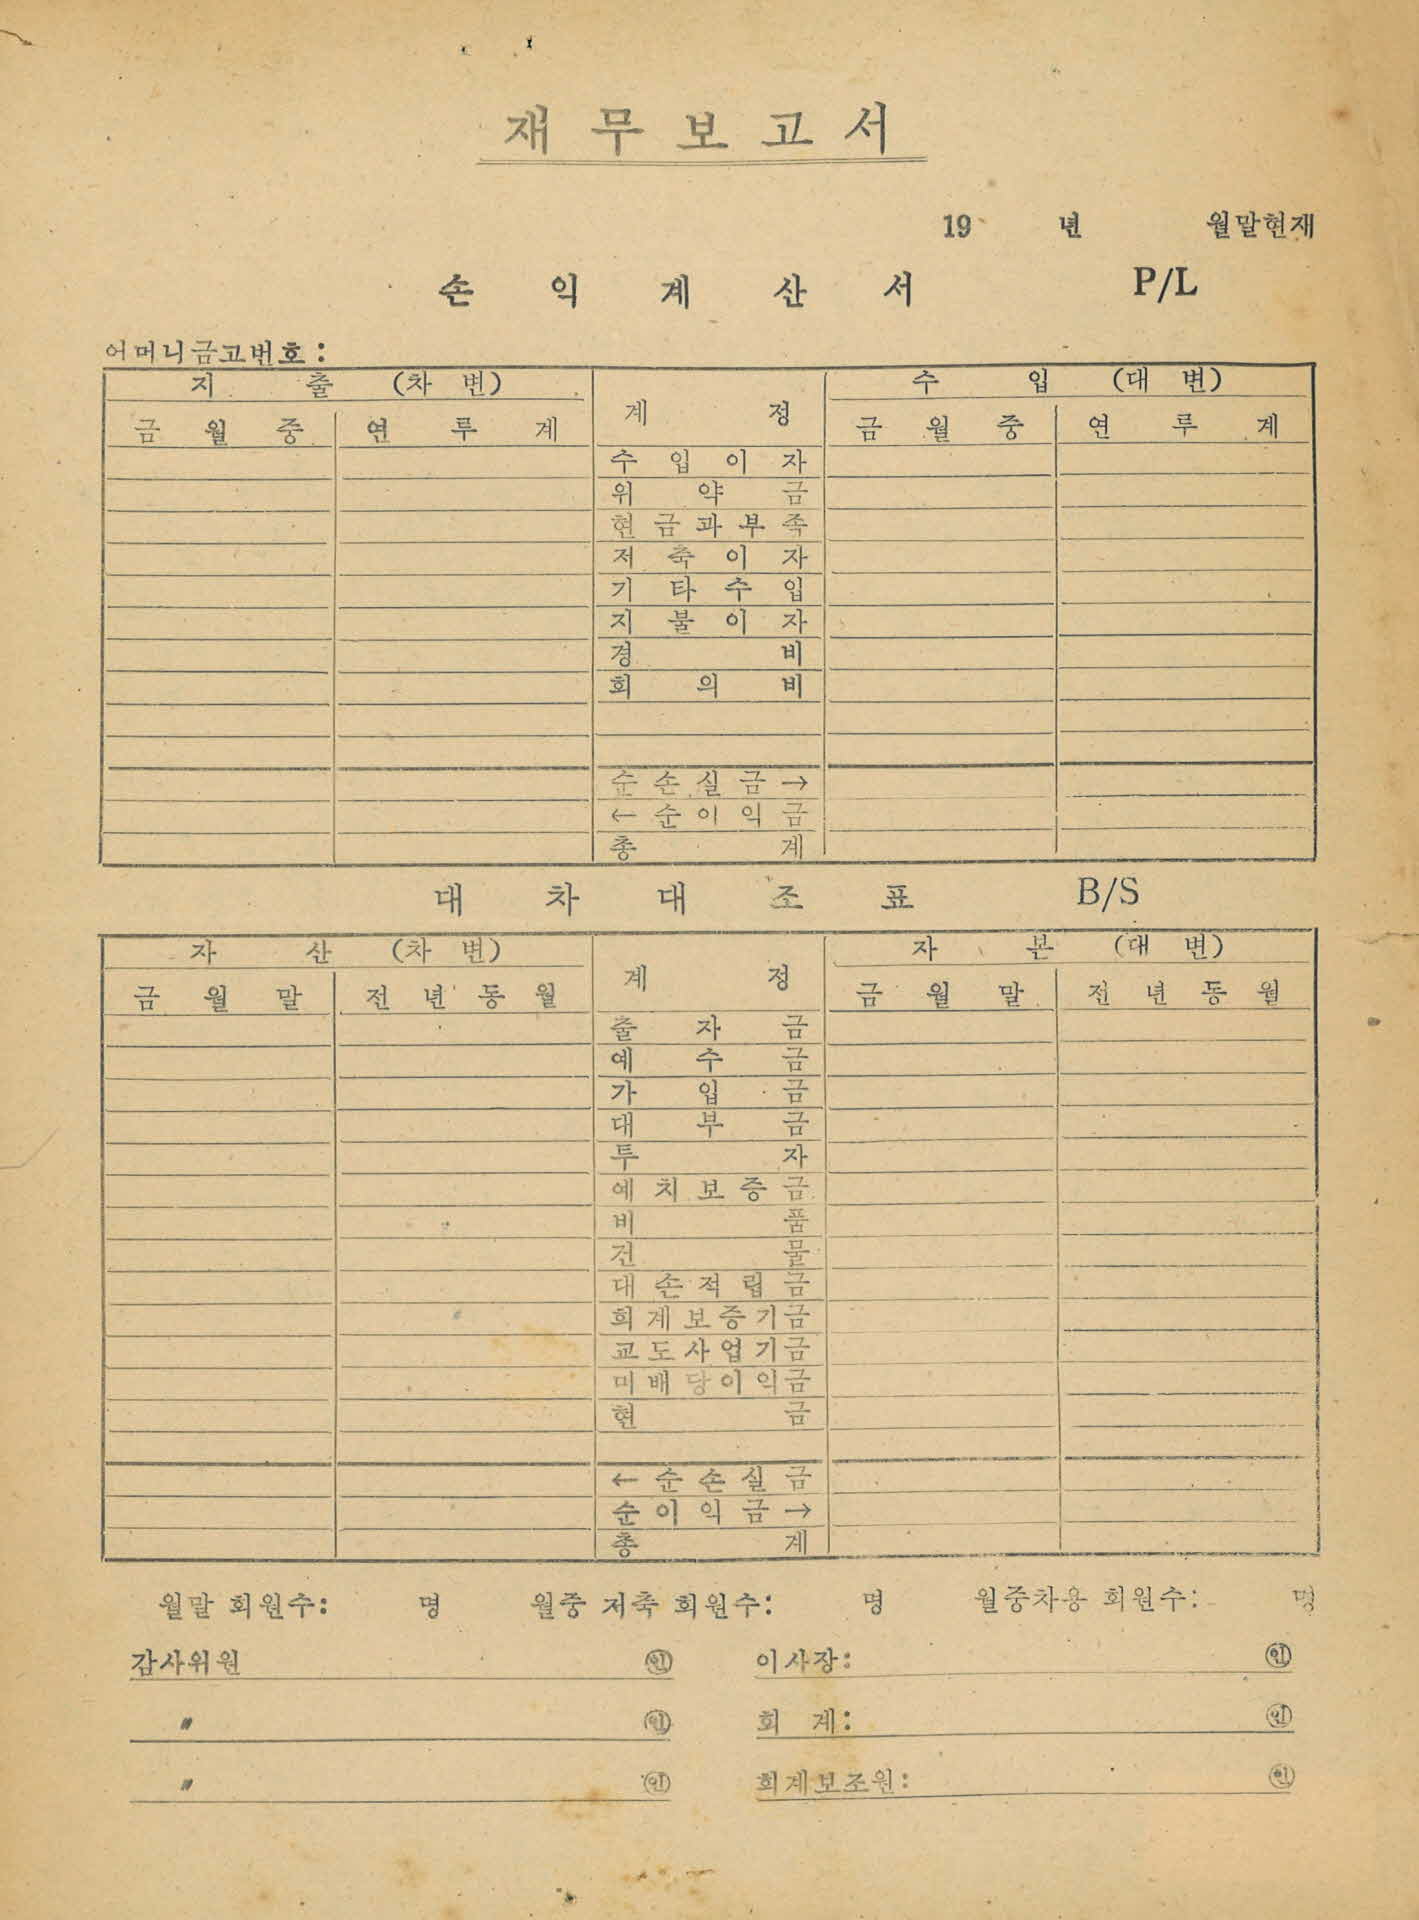 재무보고서
19 년 월말현재
손익계산서 P/L
어머니금고번호:
지출 (차변) 계정 수입 (대변)
금월중 연루계 금월중 연루계
수입이자
위약금
현금과부족
저축이자
기타수입
지불이자
경비
회의비
순손실금→
←순이익금
총계
대차대조표 B/S
자산 (차변) 계정 자본 (대변)
금월말 전년동월 금월말 전년동월
출자금
예수금
가입금
대부금
투자
예치보증금
비품
건물
대손적립금
회계보증기금
교도사업기금
미배당이익금
현금
←순손실금
순이익금→
총계
월말 회원수: 명 월중 저축 회원수: 명 월중차용 회원수: 명
감사위원 ㊞ 이사장: ㊞
〃 ㊞ 회계: ㊞
〃 ㊞ 회계보조원: ㊞